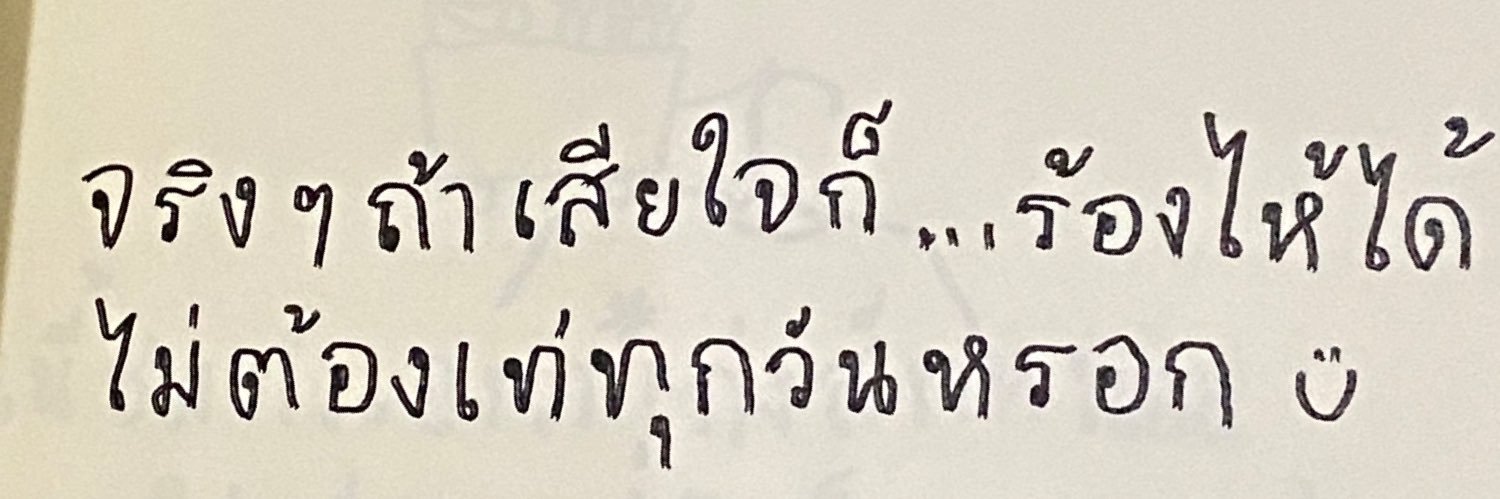 จริงๆ ถ้าเสียใจก็...ร้องไห้ได้
ไม่ต้องเท่ทุกวันหรอก ☺